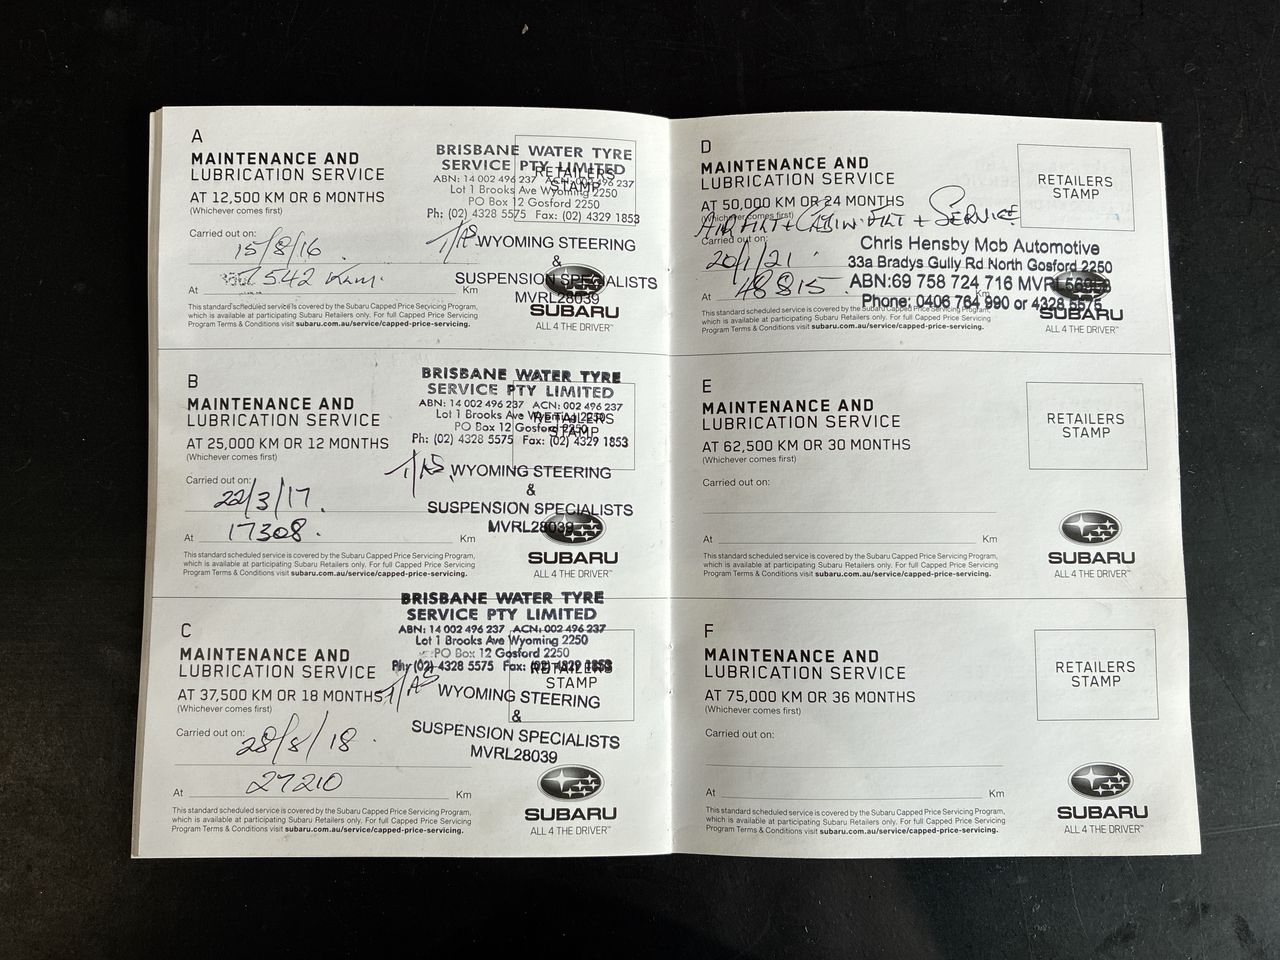 A
MAINTENANCE AND
LUBRICATION SERVICE
AT 12,500 KM OR 6 MONTHS
(Whichever comes first)
Carried out on:
15/8/16
At 542 Km. Km
This standard scheduled service is covered by the Subaru Capped Price Servicing Program,
which is available at participating Subaru Retailers only. For full Capped Price Servicing
Program Terms & Conditions visit subaru.com.au/service/capped-price-servicing.
RETAILERS
STAMP
BRISBANE WATER TYRE
SERVICE PTY LIMITED
ABN: 14 002 496 237 ACN: 002 496 237
Lot 1 Brooks Ave Wyoming 2250
PO Box 12 Gosford 2250
Ph: (02) 4328 5575 Fax: (02) 4329 1853
WYOMING STEERING
&
SUSPENSION SPECIALISTS
MVRL28039
SUBARU
ALL 4 THE DRIVER™
B
MAINTENANCE AND
LUBRICATION SERVICE
AT 25,000 KM OR 12 MONTHS
(Whichever comes first)
Carried out on:
22/3/17.
At 17308. Km
This standard scheduled service is covered by the Subaru Capped Price Servicing Program,
which is available at participating Subaru Retailers only. For full Capped Price Servicing
Program Terms & Conditions visit subaru.com.au/service/capped-price-servicing.
RETAILERS
STAMP
BRISBANE WATER TYRE
SERVICE PTY LIMITED
ABN: 14 002 496 237 ACN: 002 496 237
Lot 1 Brooks Ave Wyoming 2250
PO Box 12 Gosford 2250
Ph: (02) 4328 5575 Fax: (02) 4329 1853
WYOMING STEERING
&
SUSPENSION SPECIALISTS
MVRL28039
SUBARU
ALL 4 THE DRIVER™
C
MAINTENANCE AND
LUBRICATION SERVICE
AT 37,500 KM OR 18 MONTHS
(Whichever comes first)
Carried out on:
28/8/18.
At 27210 Km
This standard scheduled service is covered by the Subaru Capped Price Servicing Program,
which is available at participating Subaru Retailers only. For full Capped Price Servicing
Program Terms & Conditions visit subaru.com.au/service/capped-price-servicing.
RETAILERS
STAMP
BRISBANE WATER TYRE
SERVICE PTY LIMITED
ABN: 14 002 496 237 ACN: 002 496 237
Lot 1 Brooks Ave Wyoming 2250
PO Box 12 Gosford 2250
Ph: (02) 4328 5575 Fax: (02) 4329 1853
WYOMING STEERING
&
SUSPENSION SPECIALISTS
MVRL28039
SUBARU
ALL 4 THE DRIVER™
D
MAINTENANCE AND
LUBRICATION SERVICE
AT 50,000 KM OR 24 MONTHS
(Whichever comes first)
AIR FILT + CABIN FILT + SERVICE
Carried out on:
20/1/21.
At 48815 Km
This standard scheduled service is covered by the Subaru Capped Price Servicing Program,
which is available at participating Subaru Retailers only. For full Capped Price Servicing
Program Terms & Conditions visit subaru.com.au/service/capped-price-servicing.
RETAILERS
STAMP
Chris Hensby Mob Automotive
33a Bradys Gully Rd North Gosford 2250
ABN:69 758 724 716
Phone: 0406 764 990 or 4328 5575
SUBARU
ALL 4 THE DRIVER™
E
MAINTENANCE AND
LUBRICATION SERVICE
AT 62,500 KM OR 30 MONTHS
(Whichever comes first)
Carried out on:
At Km
This standard scheduled service is covered by the Subaru Capped Price Servicing Program,
which is available at participating Subaru Retailers only. For full Capped Price Servicing
Program Terms & Conditions visit subaru.com.au/service/capped-price-servicing.
RETAILERS
STAMP
SUBARU
ALL 4 THE DRIVER™
F
MAINTENANCE AND
LUBRICATION SERVICE
AT 75,000 KM OR 36 MONTHS
(Whichever comes first)
Carried out on:
At Km
This standard scheduled service is covered by the Subaru Capped Price Servicing Program,
which is available at participating Subaru Retailers only. For full Capped Price Servicing
Program Terms & Conditions visit subaru.com.au/service/capped-price-servicing.
RETAILERS
STAMP
SUBARU
ALL 4 THE DRIVER™